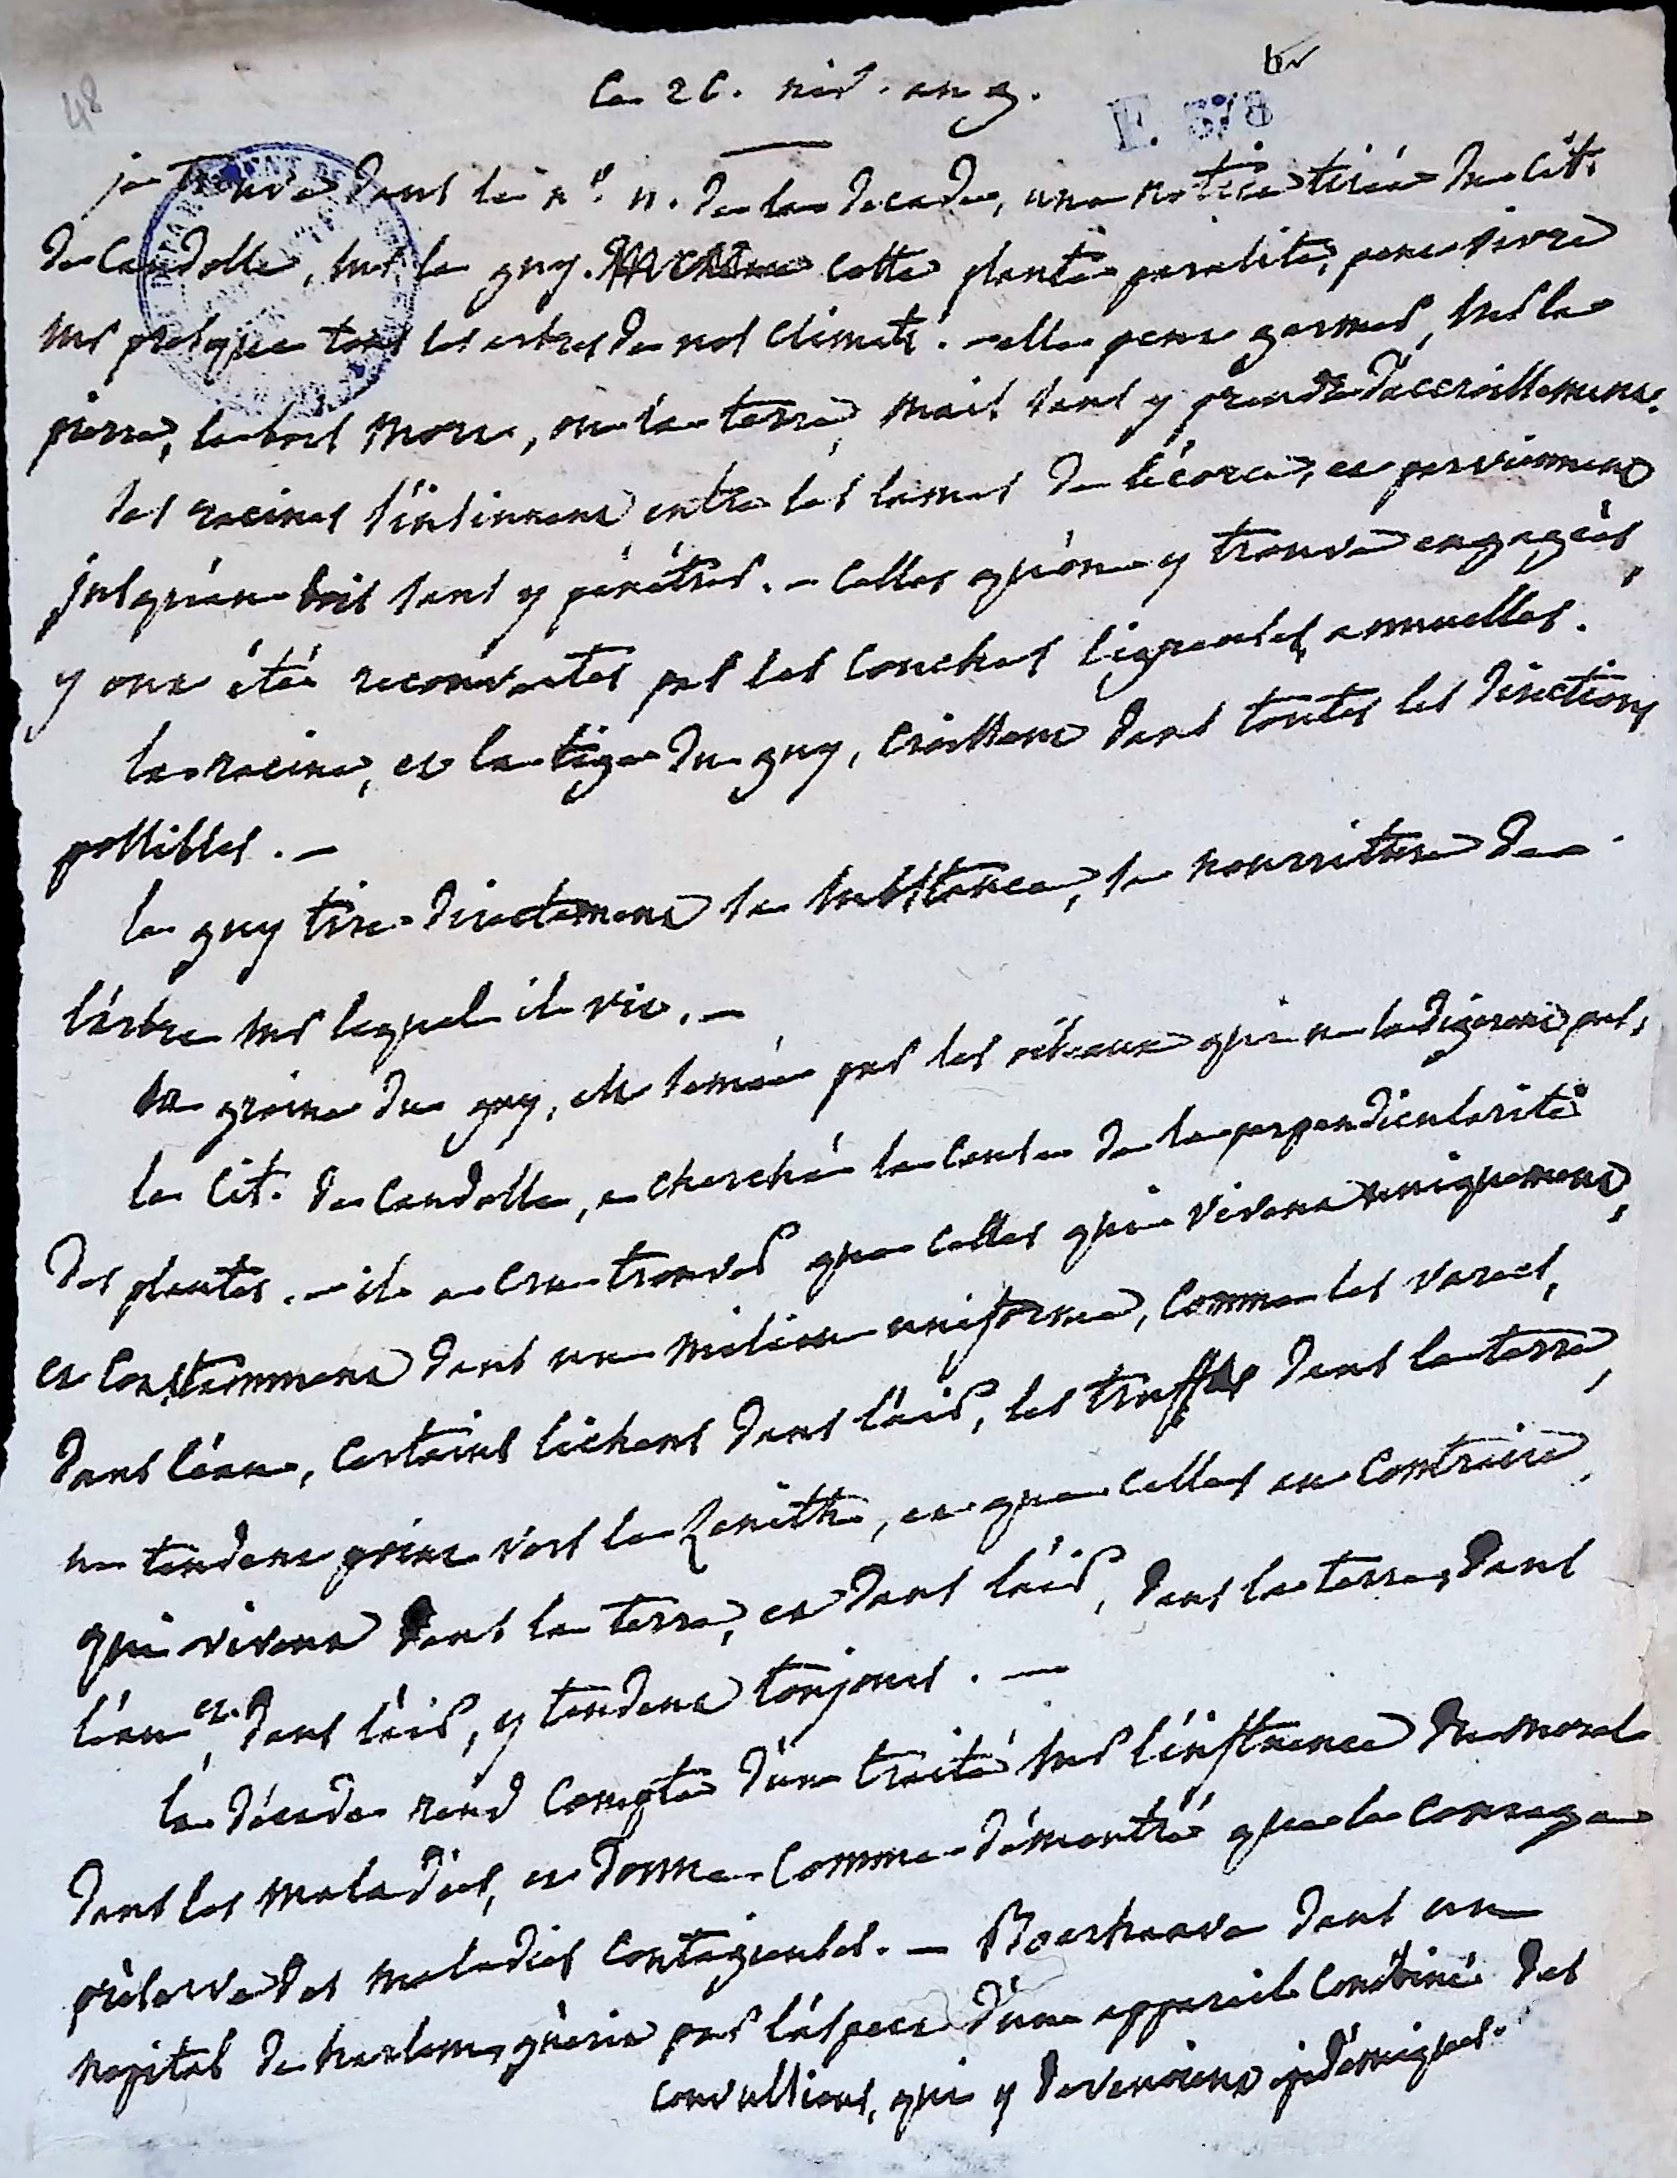 48
Le 26. niv. an 9.
F. 378
je trouve dans le n.° 11. de la decade, une notice tirée du cit.
de Candolle, sur le guy. cette plante parasite, peut vivre
sur presque tous les arbres de nos climats. - elle peut germer, sur la
pierre, le bois mort, ou la terre, mais sans y prendre d'accroissement.
les racines s'insinuent entre les lames de l'écorce, et parviennent
jusqu'au bois sans y pénétrer. - celles qu'on y trouve engagées,
y ont été recouvertes par les couches ligneuses annuelles.
la racine, et la tige du guy, croissent dans toutes les directions
possibles. -
le guy tire directement sa substance, sa nourriture de
l'arbre sur lequel il vit. -
la graine du guy, est semée par les oiseaux qui ne la digerent pas.
le cit. de Candolle, a cherché la cause de la perpendicularité
des plantes. - il a cru trouver que celles qui vivent uniquement,
et constamment dans un milieu uniforme, comme les varecs,
dans l'eau, certains lichens dans l'air, les truffes dans la terre,
ne tendent point vers le zenith, et que celles au contraire,
qui vivent dans la terre, et dans l'air, dans la terre, dans
l'eau, et dans l'air, y tendent toujours. -
la décade rend compte d'un traité sur l'influence du moral
dans les maladies, et donne comme démontré que le courage
préserve des maladies contagieuses. - Boerhaave dans un
hopital de harlem, guérit par l'aspect d'un appareil combiné des
convulsions, qui y devenoient epidémiques.